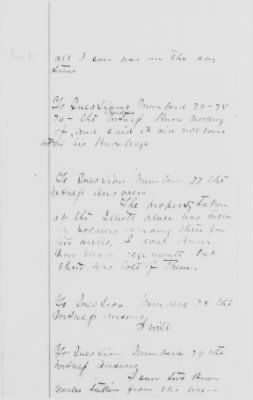 all I saw was in the day
time
To Questions Numberd 74-75
76 - the Witness Knew nothing
of, and said it did not come
in his Knowledge
To Question Number 77 the
Witness answers
The property taken
at the place was taken
by Soldiers
five weeks, I dont Know
how many regiments but
there was lots of them.
To Question Numberd 78 the
Witness answers
I will
To Question Numberd 79 the
Witness Answers
I saw two
mules taken from the